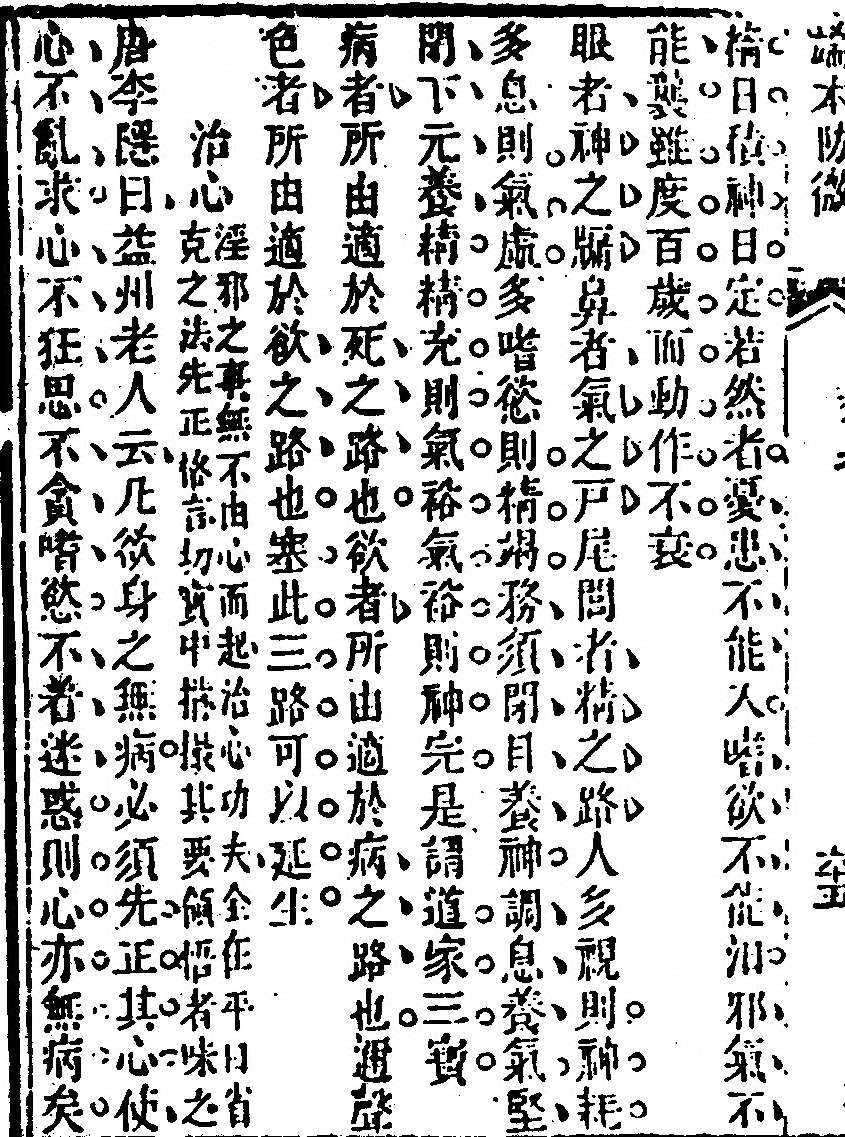 端本防微
六十五
精日積神日定若然者憂患不能入嗜欲不能汩邪氣不
能襲雖度百歲而動作不衰
眼者神之牖鼻者氣之戸尾閭者精之路人多視則神耗
多息則氣虛多嗜慾則精竭務須閉目養神調息養氣堅
閉下元養精精充則氣裕氣裕則神完是謂道家三寶
病者所由適於死之路也欲者所由適於病之路也邇聲
色者所由適於欲之路也塞此三路可以延生
治心
淫邪之事無不由心而起治心功夫全在平日省
克之法先正修言切實中掇其要領悟者味之
唐李隱曰益州老人云凡欲身之無病必須先正其心使
心不亂求心不狂思不貪嗜慾不著迷惑則心亦無病矣